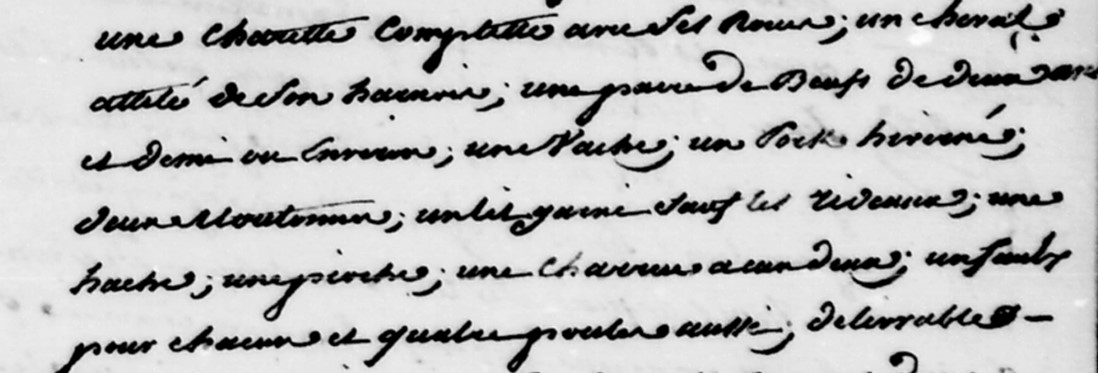 une charette complette avec ses Roues; un cheval
attelé de son harnois; une paire de Bœufs de deux ans
et demi ou Environ; une Vache; un Pock hiverné;
deux Moutonnes; un lit garni sauf les rideaux; une
hache; une pioche; une charrue a eux deux; un faulx
pour chacun et quatre poules aussi; delivrables –